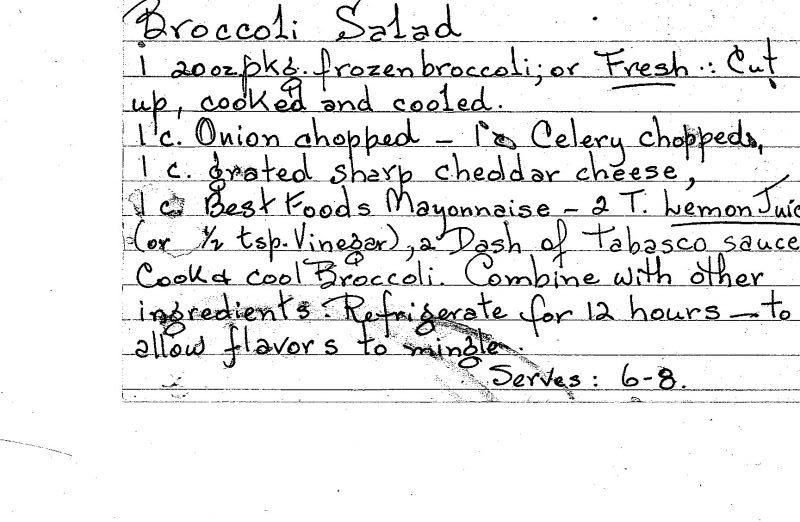 Broccoli Salad
1 20 oz. pkg. frozen broccoli; or Fresh: Cut
up, cooked and cooled.
1 c. Onion chopped - 1 c. Celery chopped,
1 c. grated sharp cheddar cheese,
1 c. Best Foods Mayonnaise - 2 T. Lemon Juic
(or 1/2 tsp. Vinegar), a Dash of Tabasco sauce
Cook & cool Broccoli. Combine with other
ingredients. Refrigerate for 12 hours - to
allow flavors to mingle.
Serves: 6-8.